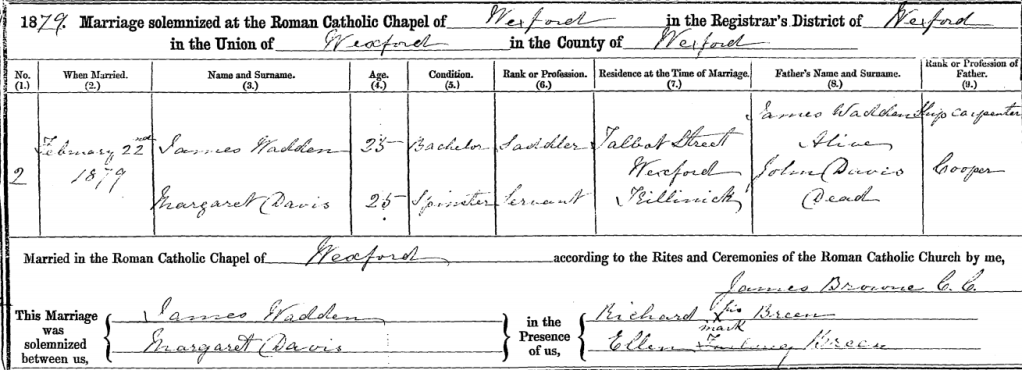 1879. Marriage solemnized at the Roman Catholic Chapel of Wexford in the Registrar's District of Wexford
in the Union of Wexford in the County of Wexford
No. When Married. Name and Surname. Age. Condition. Rank or Profession. Residence at the Time of Marriage. Father's Name and Surname. Rank or Profession of Father.
(1.) (2.) (3.) (4.) (5.) (6.) (7.) (8.) (9.)
2 February 22nd 1879
James Wadden 25 Bachelor Saddler Talbot Street Wexford James Wadden Alive Ship carpenter
Margaret Davis 25 Spinster Servant Killinick John Davis Dead Cooper
Married in the Roman Catholic Chapel of Wexford according to the Rites and Ceremonies of the Roman Catholic Church by me,
James Browne C.C.
This Marriage was solemnized between us,
James Wadden
Margaret Davis
in the Presence of us,
Richard his X mark Breen
Ellen Breen